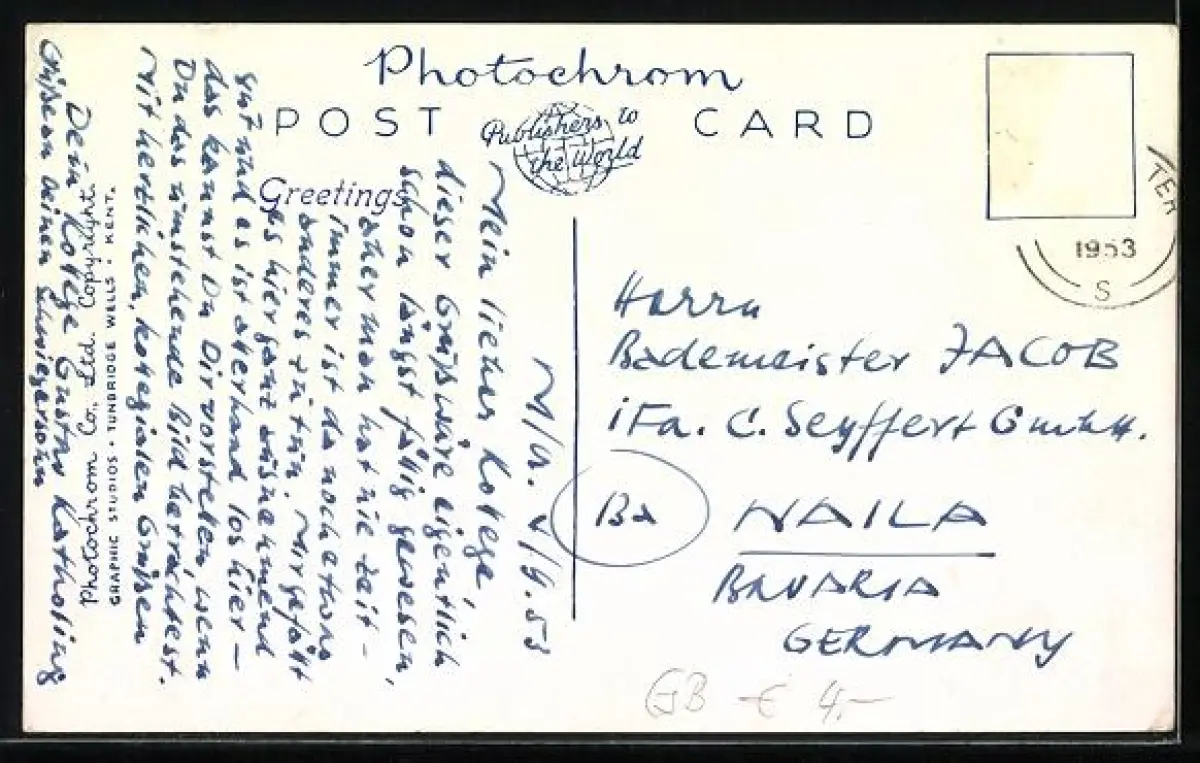 Photochrom
POST CARD
Publishers to
the World
Greetings
1953
S
Mein lieber Kollege,
dieser Gruß wäre eigentlich
schon längst fällig gewesen,
aber man hat nie Zeit –
immer ist da noch etwas
anderes zu tun. Mir gefällt
es hier ganz ausnehmend
gut und es ist allerhand los hier –
das kannst Du Dir vorstellen wenn
Du das umstehende Bild betrachtest.
Mit herzlichen, kollegialen Grüßen
Dein Kollege Gustav
Grüßen deinen Schwiegersohn
Photochrom Co., Ltd. Copyright.
GRAPHIC STUDIOS · TUNBRIDGE WELLS · KENT.
Herrn
Bademeister JACOB
i Fa. C. Seyffert GmbH.
Ba
NAILA
BAVARIA
GERMANY
GB € 4.-